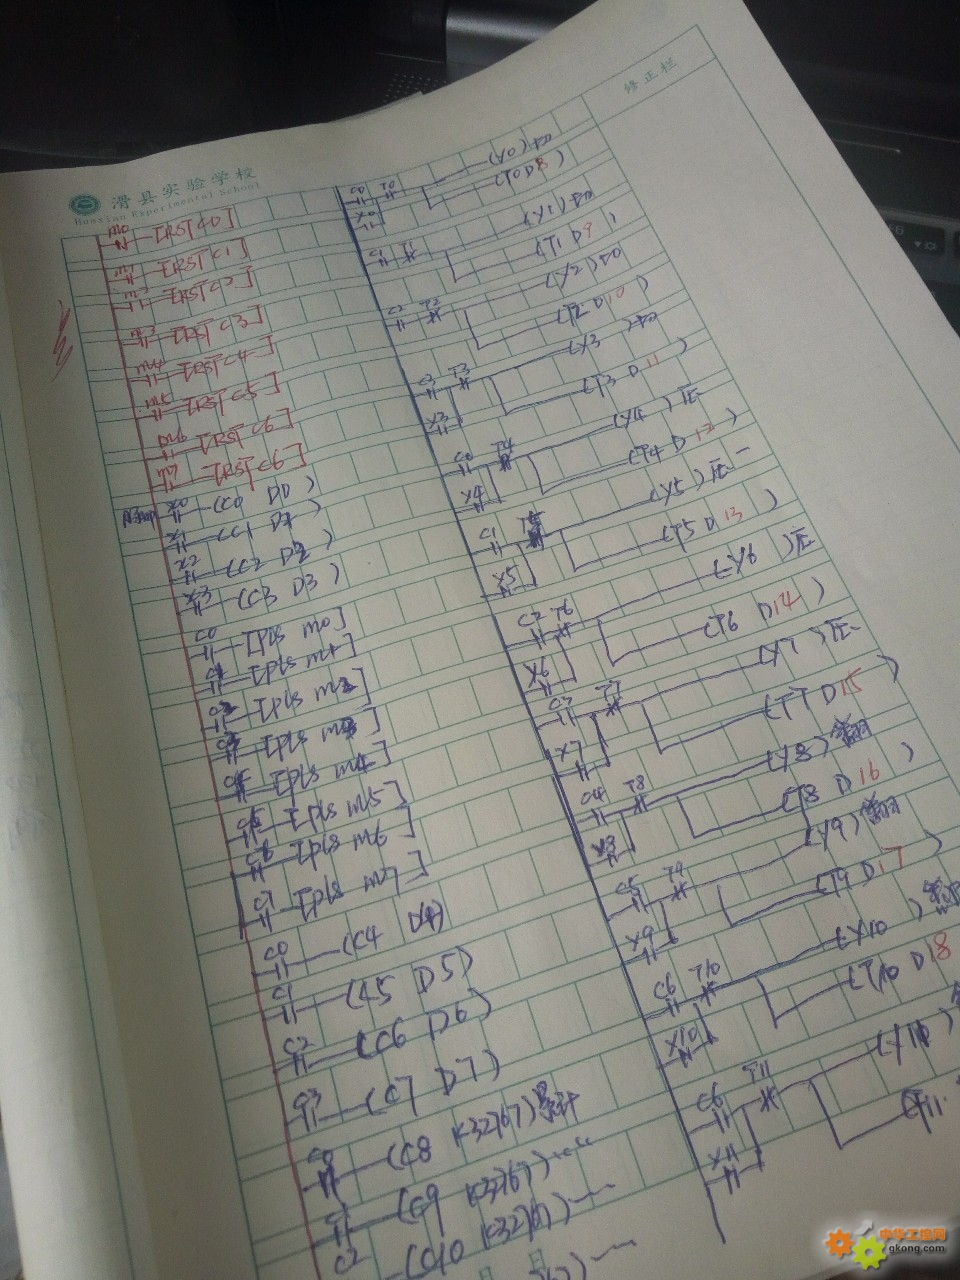 滑县实验学校
Huaxian Experimental School
修正栏
M0 [RST C0]
[RST C1]
[RST C2]
[RST C3]
M4 [RST C4]
M5 [RST C5]
M6 [RST C6]
M7 [RST C6]
X0 (C0 D0)
X1 (C1 D1)
X2 (C2 D2)
X3 (C3 D3)
C0 [pls m0]
[pls m1]
[pls m2]
[pls m3]
[pls m4]
C5 [pls m5]
C6 [pls m6]
C7 [pls m7]
C0 (C4 D4)
C1 (C5 D5)
C2 (C6 D6)
C3 (C7 D7)
C0 (C8 K32767) 累计
C1 (C9 K32767)
C2 (C10 K32767)
C0 T0 (Y0)
Y0 (T0 D8)
C1 T1 (Y1)
(T1 D9)
C2 T2 (Y2)
(T2 D10)
C3 T3 (Y3)
Y3 (T3 D11)
C0 T4 (Y4) 压
Y4 (T4 D12)
C1 (Y5) 压一
Y5 (T5 D13)
C2 T6 (Y6) 压
Y6 (T6 D14)
C3 T7 (Y7) 压一
Y7 (T7 D15)
C4 T8 (Y8)
Y8 (T8 D16)
C5 T9 (Y9)
Y9 (T9 D17)
C6 T10 (Y10)
Y10 (T10 D18)
C6 T11
Y11 (T11
中华工控网
gkong.com